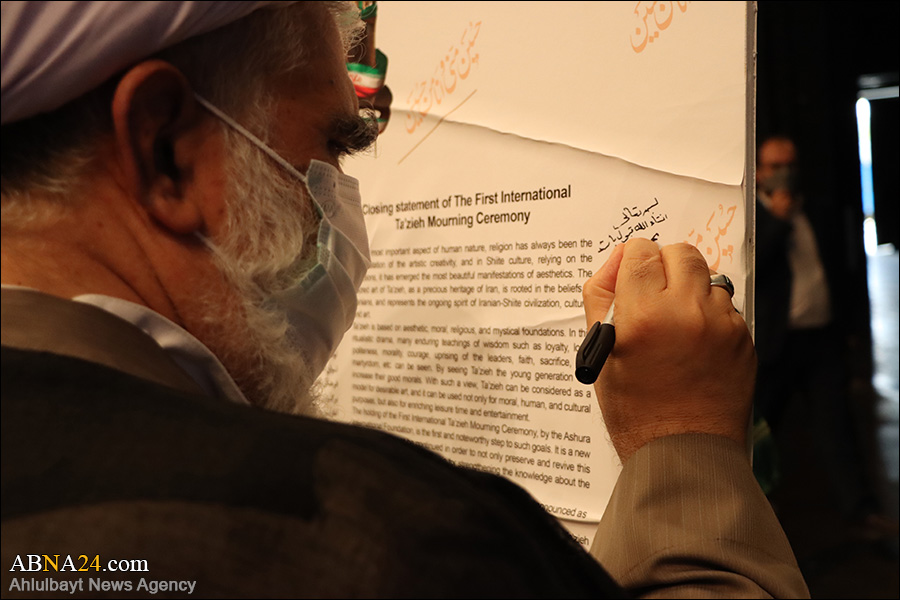 حسین منی و انا من حسین
Closing statement of The First International
Ta'zieh Mourning Ceremony
بسمه تعالی
انشاء الله
most important aspect of human nature, religion has always been the
of the artistic creativity, and in Shiite culture, relying on the
it has emerged the most beautiful manifestations of aesthetics. The
art of Ta'zieh, as a precious heritage of Iran, is rooted in the beliefs,
and represents the ongoing spirit of Iranian-Shiite civilization, culture
and art.
Ta'zieh is based on aesthetic, moral, religious, and mystical foundations. In this
ritualistic drama, many enduring teachings of wisdom such as loyalty,
politeness, morality, courage, uprising of the leaders, faith, sacrifice,
martyrdom, etc. can be seen. By seeing Ta'zieh the young generation
increase their good morals. With such a view, Ta'zieh can be considered as a
model for desirable art, and it can be used not only for moral, human, and cultural
purposes, but also for enriching leisure time and entertainment.
The holding of the First International Ta'zieh Mourning Ceremony, by the Ashura
International Foundation, is the first and noteworthy step to such goals. It is a new
continued in order to not only preserve and revive this
strengthening the knowledge about the
announced as
Ta'zieh
ABNA24.com
Ahlulbayt News Agency